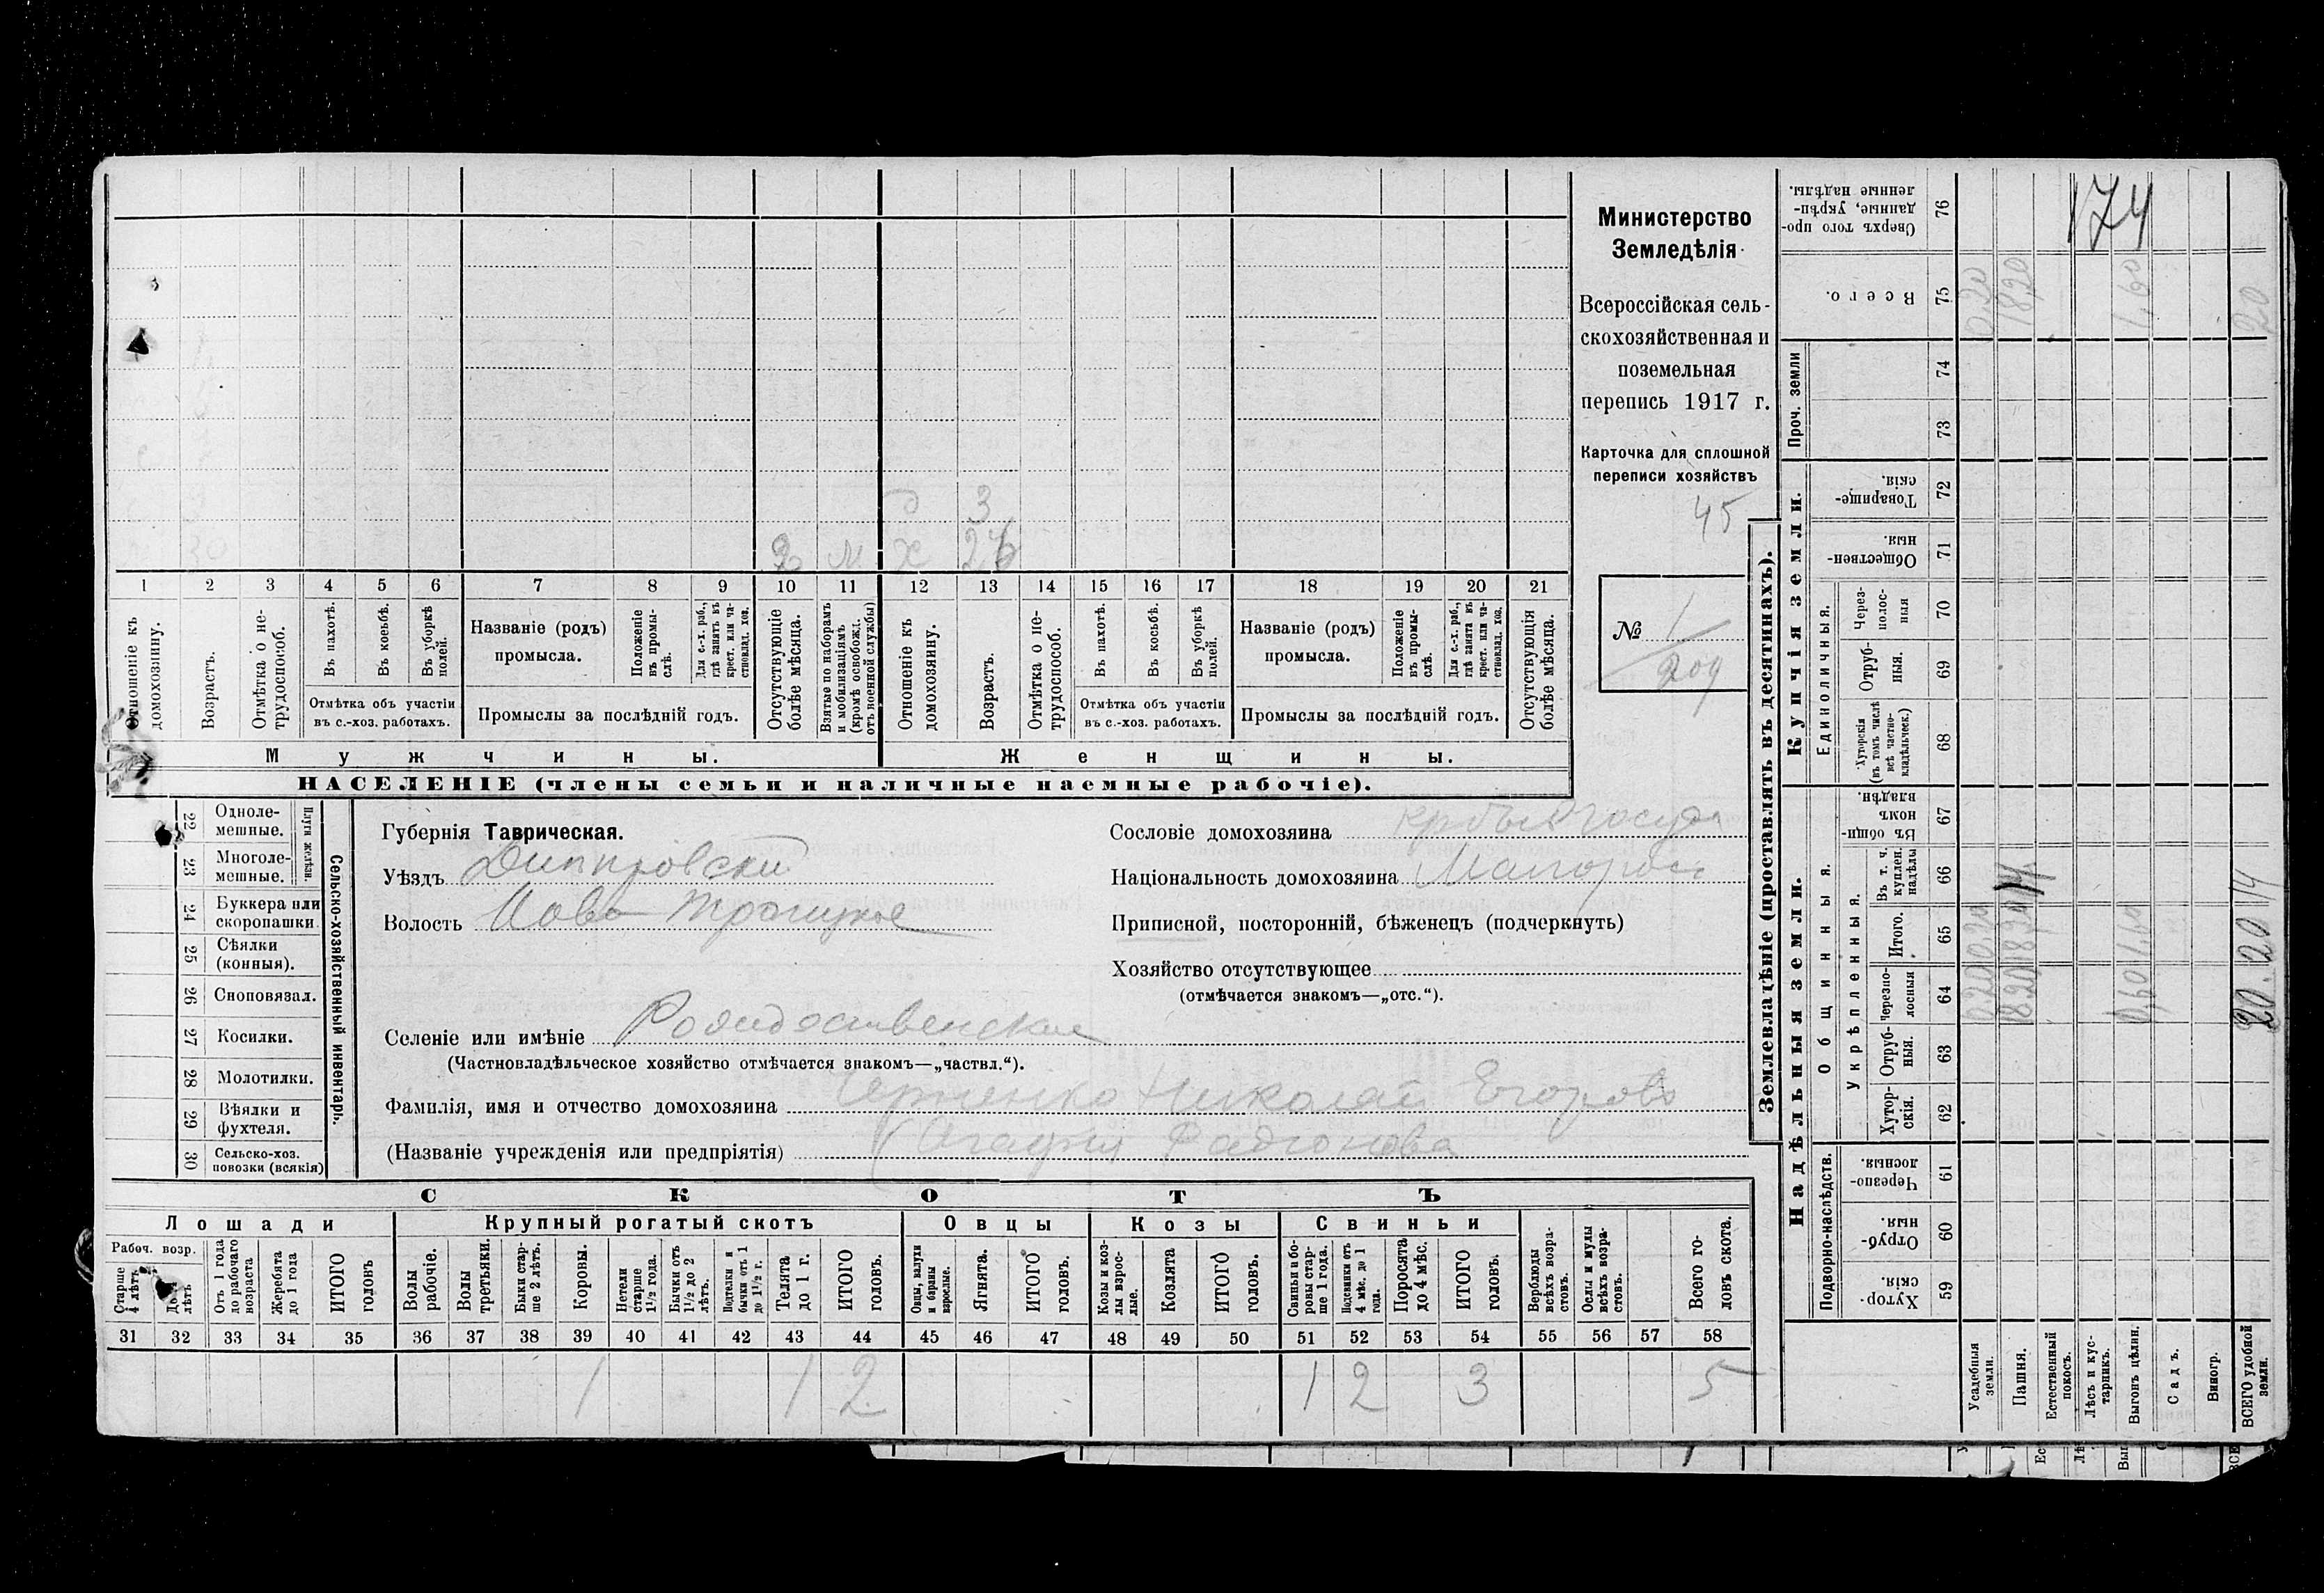 3
30 2 м х 26
1 2 3 4 5 6 7 8 9 10 11 12 13 14 15 16 17 18 19 20 21
Отношеніе къ домохозяину.
Возрастъ.
Отмѣтка о не-трудоспособ.
Въ пахотѣ.
Въ косьбѣ.
Въ уборкѣ полей.
Отмѣтка объ участіи
въ с.-хоз. работахъ.
Названіе (родъ)
промысла.
Положеніе въ промы-слѣ.
Для с.-х. раб., гдѣ занятъ въ крест. или ча-стновлад. хоз.
Промыслы за послѣдній годъ.
Отсутствующіе болѣе мѣсяца.
Взятые по наборамъ и мобилизаціямъ (кромѣ освобожд. отъ военной службы)
Отношеніе къ домохозяину.
Возрастъ.
Отмѣтка о не-трудоспособ.
Въ пахотѣ.
Въ косьбѣ.
Въ уборкѣ полей.
Отмѣтка объ участіи
въ с.-хоз. работахъ.
Названіе (родъ)
промысла.
Положеніе въ промы-слѣ.
Для с.-х. раб., гдѣ занята въ крест. или ча-стновлад. хоз.
Промыслы за послѣдній годъ.
Отсутствующія болѣе мѣсяца.
Мужчины. Женщины.
НАСЕЛЕНІЕ (члены семьи и наличные наемные рабочіе).
Министерство
Земледѣлія
Всероссійская сель-
скохозяйственная и
поземельная
перепись 1917 г.
Карточка для сплошной
переписи хозяйствъ
45
№ 1
209
22 Одноле-мешные.
23 Многоле-мешные.
Плуги желѣзн.
24 Буккера или скоропашки
25 Сѣялки (конныя).
26 Сноповязал.
27 Косилки.
28 Молотилки.
29 Вѣялки и фухтеля.
30 Сельско-хоз. повозки (всякія)
Сельско-хозяйственный инвентарь.
Губернія Таврическая.
Уѣздъ Днипровски
Волость Ново Троицкое
Селеніе или имѣніе Рождественское
(Частновладѣльческое хозяйство отмѣчается знакомъ—„частвл.“).
Фамилія, имя и отчество домохозяина Черненко Николай Егоровъ
(Названіе учрежденія или предпріятія)
Сословіе домохозяина
Національность домохозяина Малорос
Приписной, посторонній, бѣженецъ (подчеркнуть)
Хозяйство отсутствующее
(отмѣчается знакомъ—„отс.“).
СКОТЪ
Лошади Крупный рогатый скотъ Овцы Козы Свиньи
Рабоч. возр.
Старше 4 лѣтъ
До 4 лѣтъ
Отъ 1 года до рабочаго возраста
Жеребята до 1 года
ИТОГО головъ
Волы рабочіе.
Волы третьяки.
Быки стар-ше 2 лѣтъ.
Коровы.
Нетели старше 1½ года.
Бычки отъ 1½ до 2 лѣтъ.
Подтелки и бычки отъ 1 до 1½ г.
Телята до 1 г.
ИТОГО головъ.
Овцы, валухи и бараны взрослые.
Ягнята.
ИТОГО головъ.
Козы и коз-лы взрос-лые.
Козлята
ИТОГО головъ.
Свиньи и бо-ровы стар-ше 1 года.
Подсвинки отъ 4 мѣс. до 1 года.
Поросята до 4 мѣс.
ИТОГО головъ.
Верблюды всѣхъ возра-стовъ.
Ослы и мулы всѣхъ возра-стовъ.
Всего го-ловъ скота.
31 32 33 34 35 36 37 38 39 40 41 42 43 44 45 46 47 48 49 50 51 52 53 54 55 56 57 58
1 1 2 1 2 3 5
Землевладѣніе (проставлять въ десятинахъ).
Надѣльныя земли. Купчія земли. Проч. земли
Подворно-наслѣдств.
Общинныя.
Укрѣпленныя.
Единоличныя.
Хутор-скія. 59
Отруб-ныя. 60
Черезпо-лосныя. 61
Хутор-скія. 62
Отруб-ныя. 63
Черезпо-лосныя 64
Итого. 65
Въ т. ч. куплен. надѣлы 66
Въ общин-номъ владѣн. 67
Хуторскія (въ томъ числѣ всѣ частно-владѣльческ.) 68
Отруб-ныя. 69
Через-полос-ныя 70
Обществен-ныя. 71
Товарище-скія. 72
73
74
Всего. 75
Сверхъ того про-данные, укрѣп-ленные надѣлы. 76
174
Усадебныя земли. 0.20 0.20 0.20
Пашня. 18.20 18.20 14 18,20
Естественный покосъ.
Лѣсъ и кус-тарникъ.
Выгонъ цѣлин. 1,60 1,60 1,60
Садъ.
Виногр.
ВСЕГО удобной земли. 20. 20 14 20